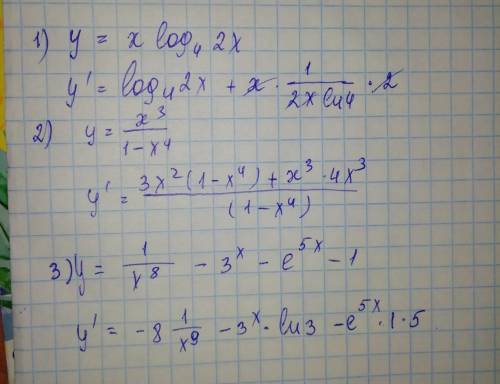 1) y = x log₄ 2x
y' = log₄ 2x + x · 1/(2x ln4) · 2
2) y = x³/(1-x⁴)
y' = (3x²(1-x⁴) + x³ · 4x³)/(1-x⁴)
3) y = 1/x⁸ - 3ˣ - e⁵ˣ - 1
y' = -8 1/x⁹ - 3ˣ · ln3 - e⁵ˣ · 1 · 5